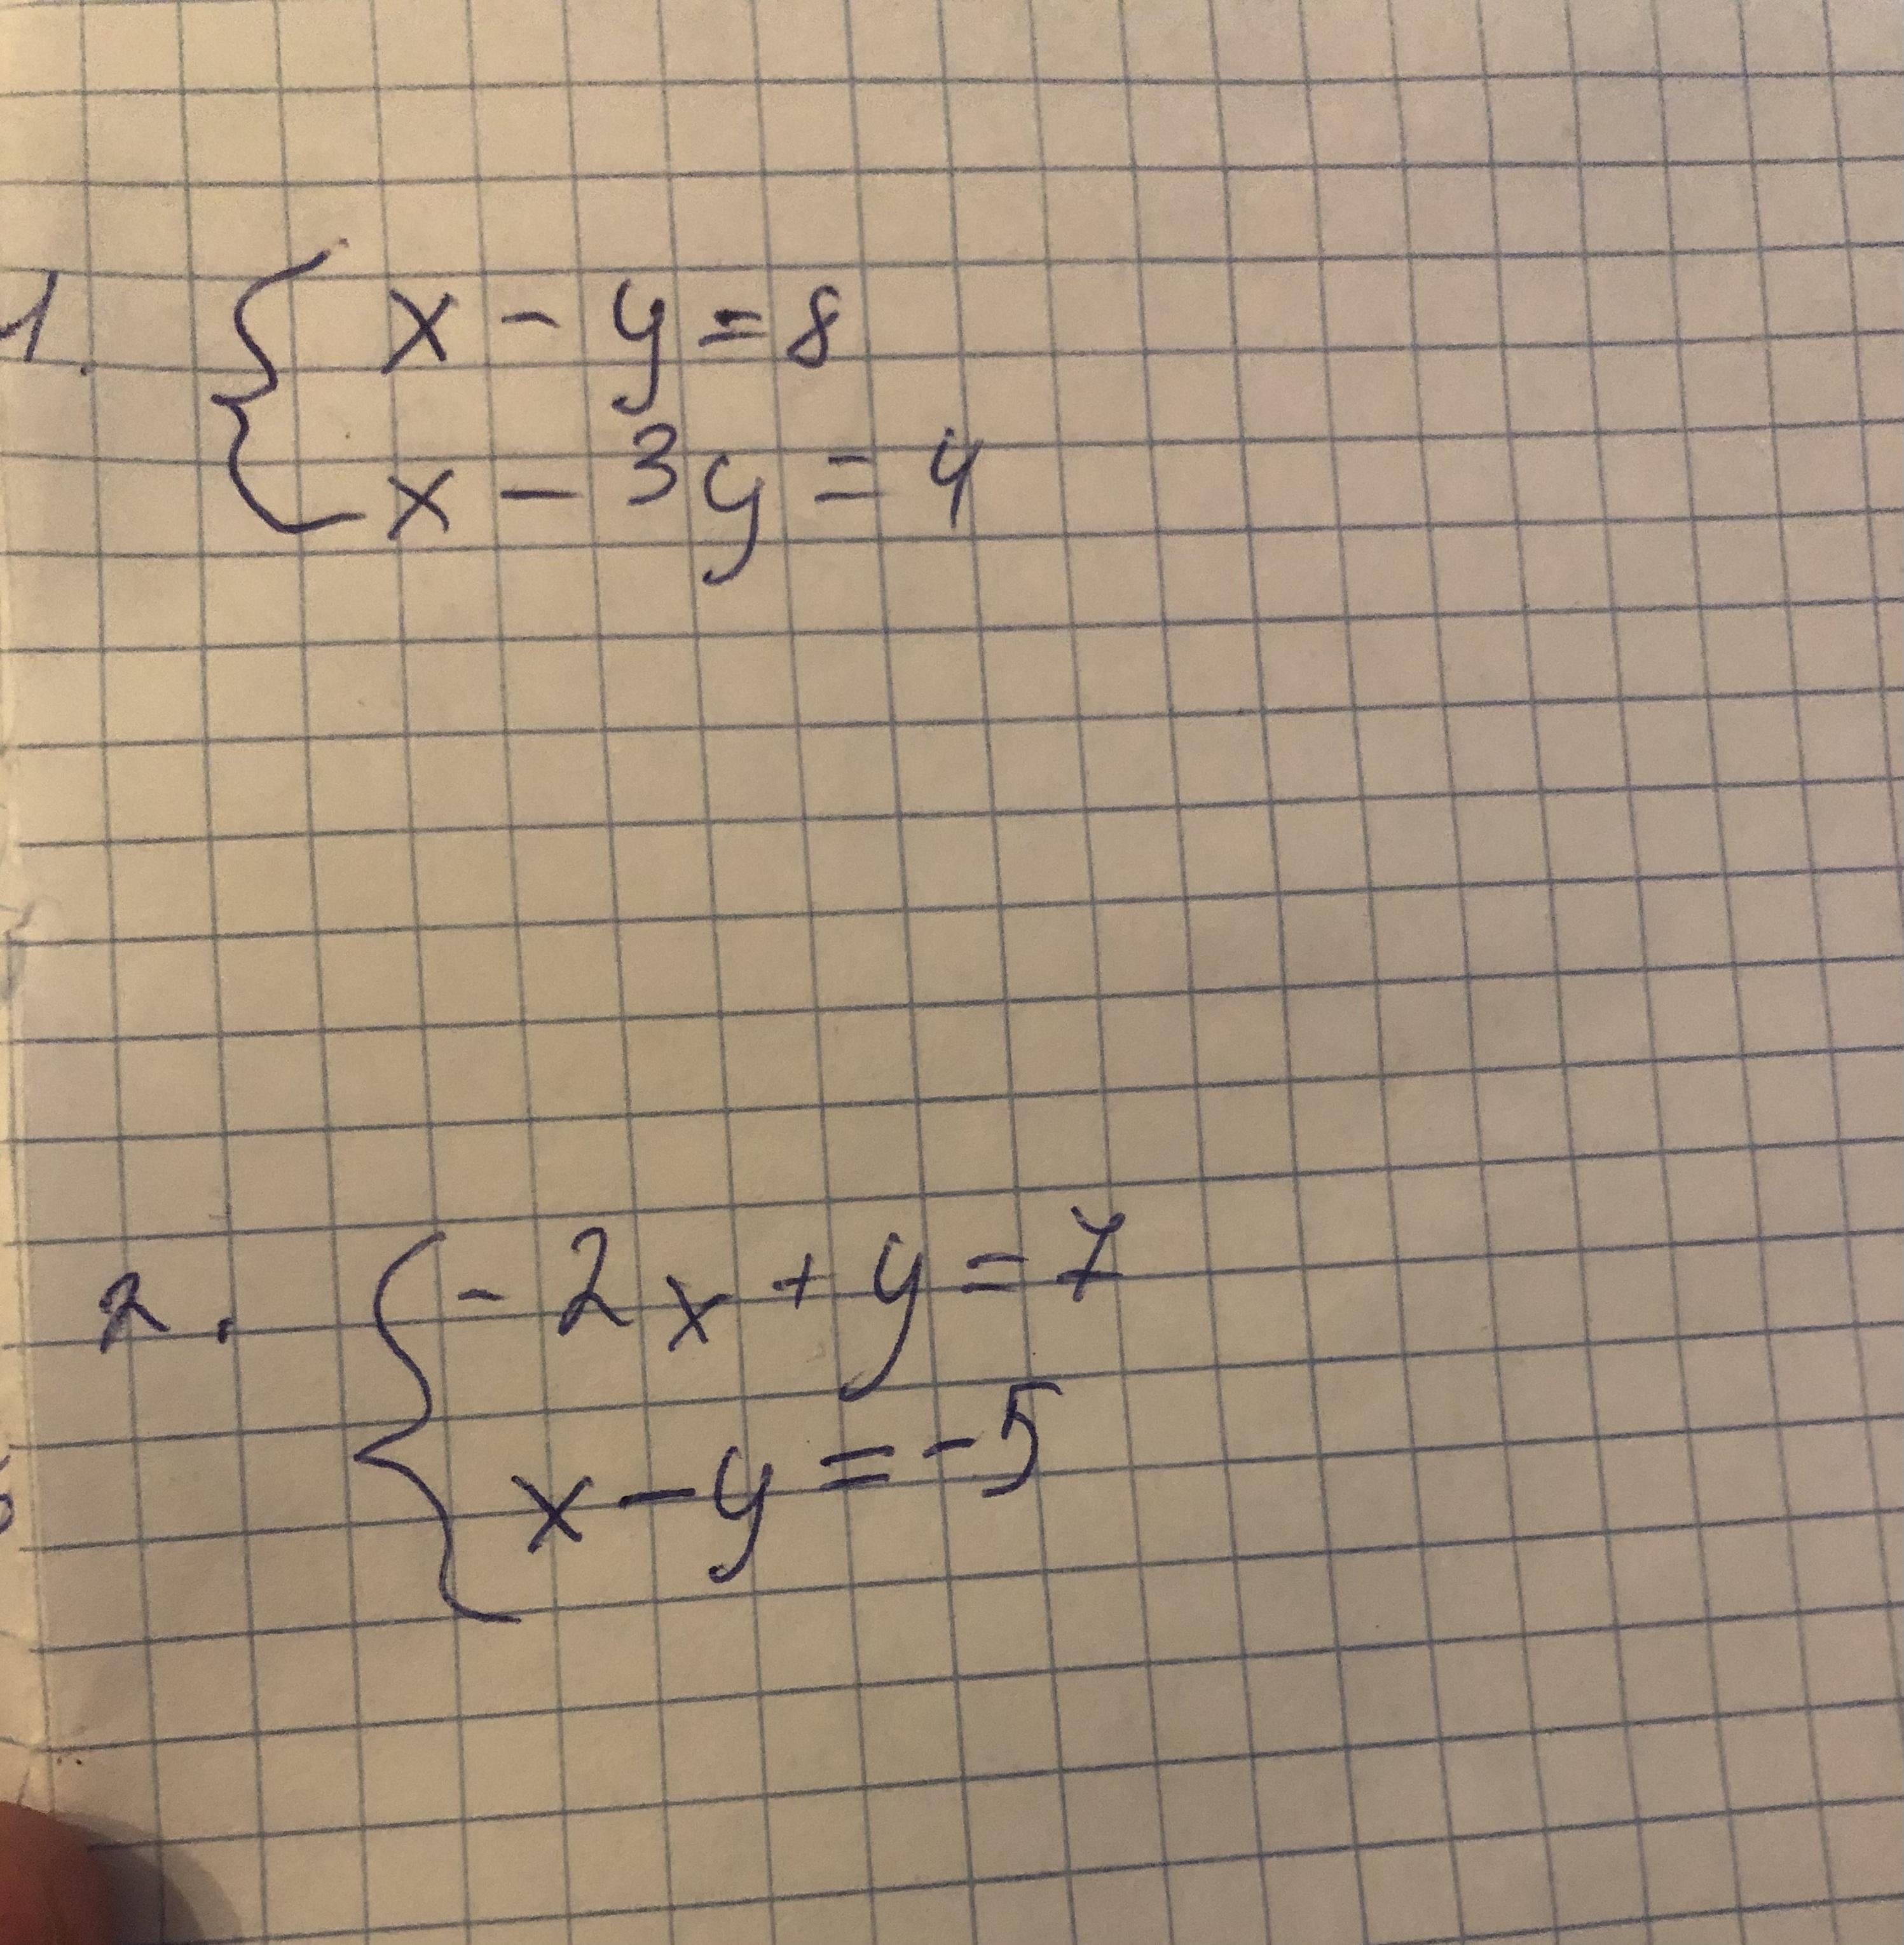 1. { x - y = 8
x - 3y = 4
2. { - 2x + y = 7
x - y = -5